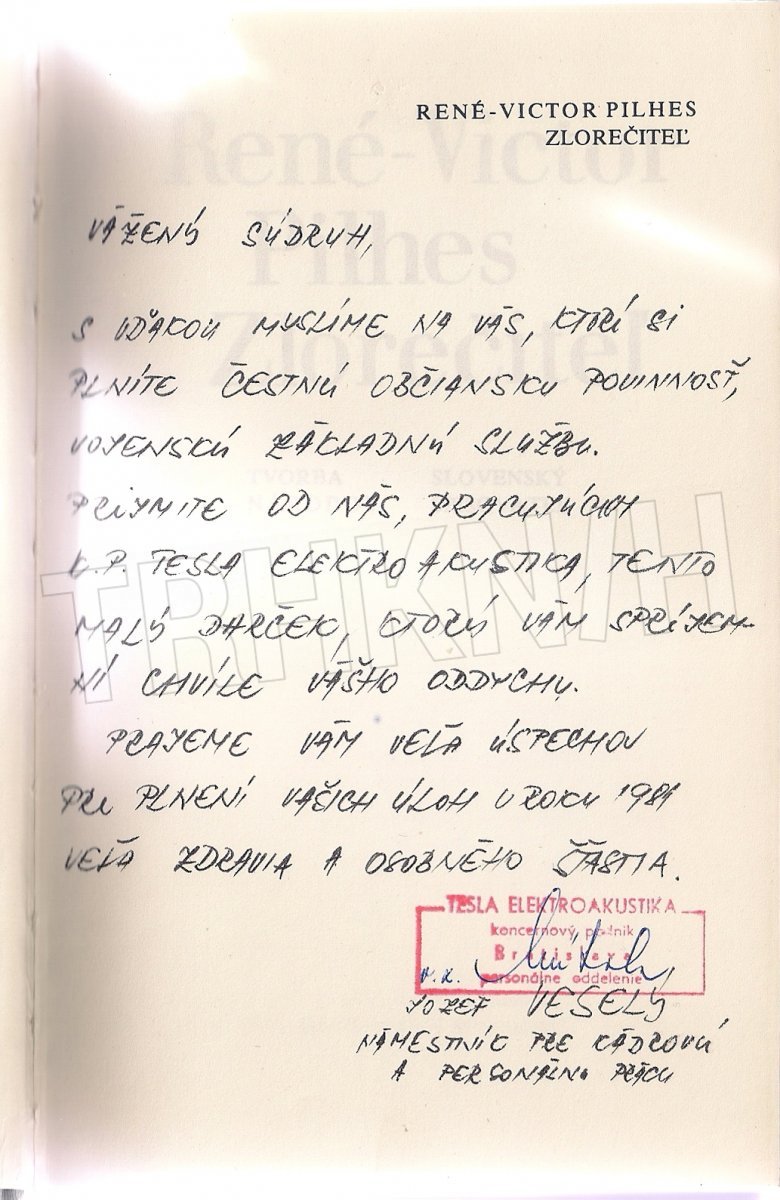 RENÉ-VICTOR PILHES
ZLOREČITEĽ
VÁŽENÝ SÚDRUH,
S VĎAKOU MYSLÍME NA VÁS, KTORÍ SI
PLNÍTE ČESTNÚ OBČIANSKU POVINNOSŤ,
VOJENSKÚ ZÁKLADNÚ SLUŽBU.
PRIJMITE OD NÁS, PRACUJÚCICH
K.P. TESLA ELEKTROAKUSTIKA, TENTO
MALÝ DARČEK, KTORÝ VÁM SPRÍJEM-
NÍ CHVÍLE VÁŠHO ODDYCHU.
PRAJEME VÁM VEĽA ÚSPECHOV
PRI PLNENÍ VAŠICH ÚLOH V ROKU 1981
VEĽA ZDRAVIA A OSOBNÉHO ŠŤASTIA.
TESLA ELEKTROAKUSTIKA
koncernový podnik
Bratislava
personálne oddelenie
JOZEF VESELÝ
NÁMESTNÍK PRE KÁDROVÚ
A PERSONÁLNU PRÁCU
TRHKNIH
René-Victor
Pilhes
Zlorečiteľ
TVORBA SLOVENSKÝ